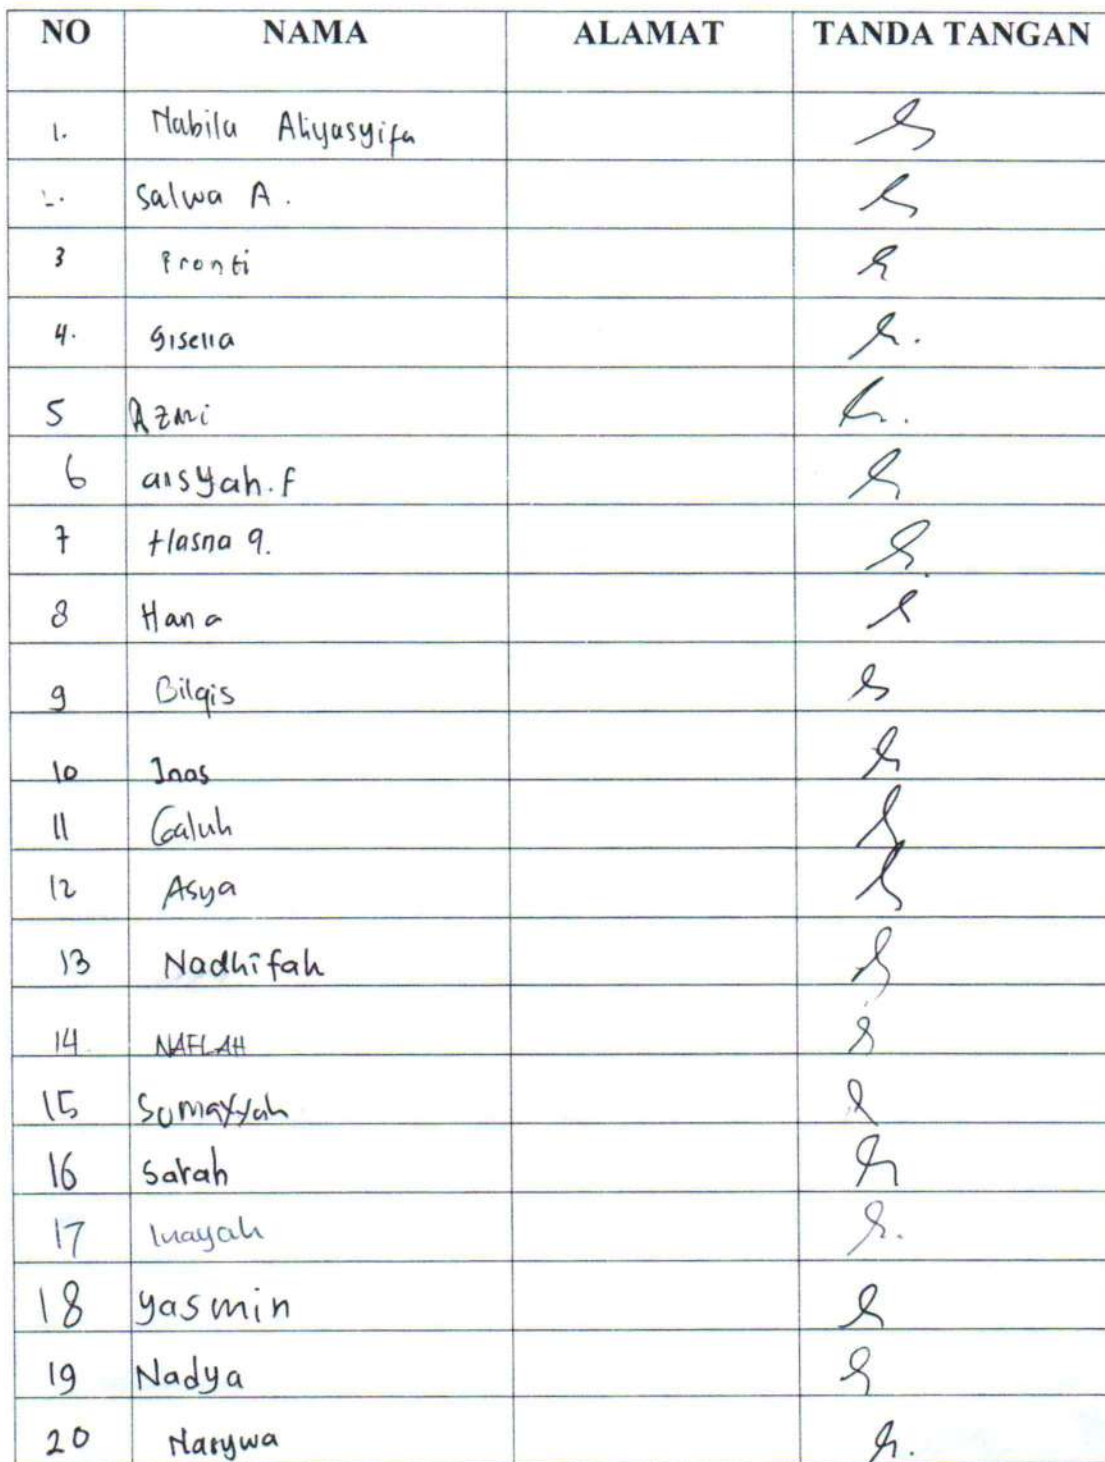 NO NAMA ALAMAT TANDA TANGAN
1. Nabila Aliyasyifa
2. Salwa A.
3 Pronti
4. Gisella
5 Azmi
6 aisyah.f
7 Hasna q.
8 Hana
9 Bilqis
10 Inas
11 Galuh
12 Asya
13 Nadhifah
14 NAFLAH
15 Sumayyah
16 Sarah
17 Inayah
18 yasmin
19 Nadya
20